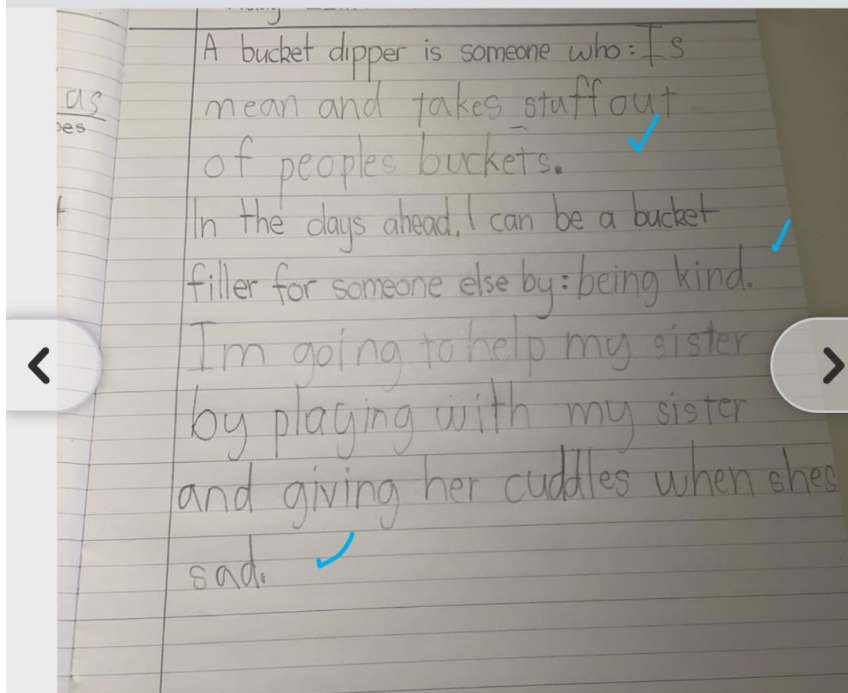 as
A bucket dipper is someone who: Is
mean and takes stuff out
of peoples buckets.
In the days ahead, I can be a bucket
filler for someone else by: being kind.
Im going to help my sister
by playing with my sister
and giving her cuddles when shes
sad.